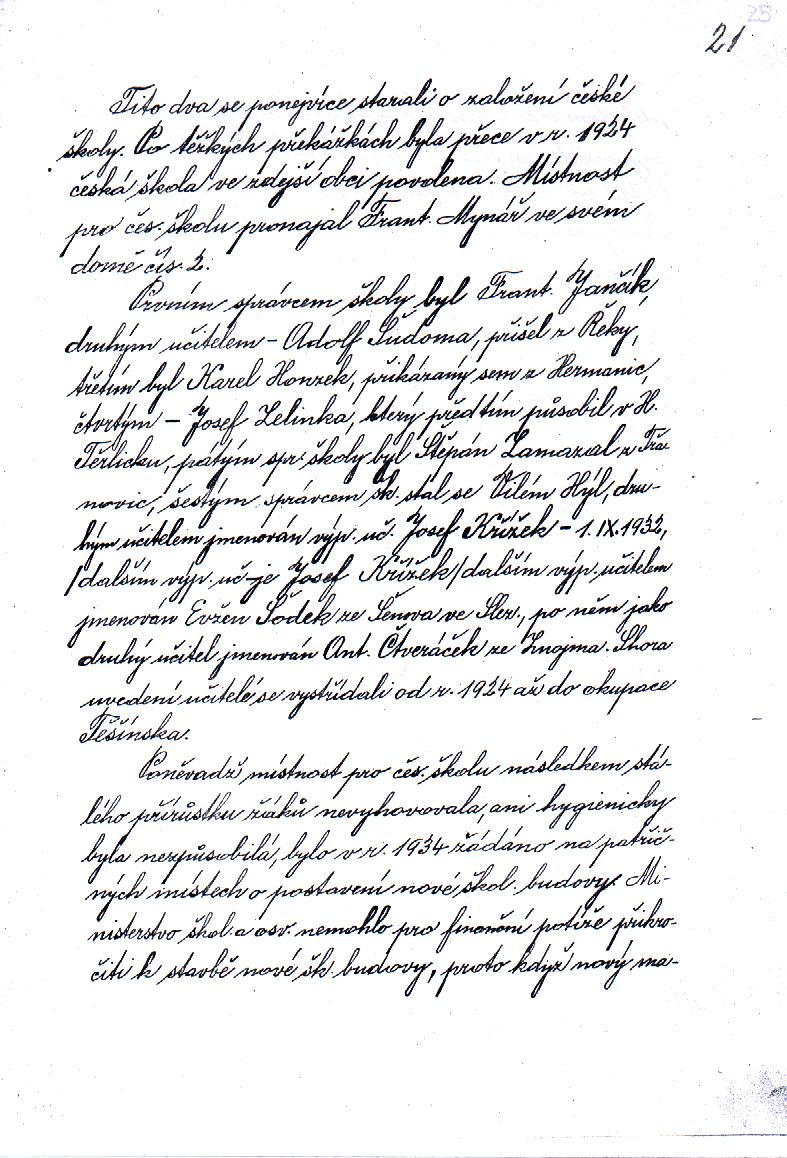 25
21
Tito dva se ponejvíce starali o založení české
školy. Po těžkých překážkách byla přece v r. 1924
česká škola ve zdejší obci povolena. Místnost
pro čes. školu pronajal Frant. Mynář ve svém
domě čís. 2.
Prvním správcem školy byl Frant. Jančík,
druhým učitelem - Adolf Sudoma, přišel z Řeky,
třetím byl Karel Honzek, přikázaný sem z Hermanic,
čtvrtým - Josef Zelinka, který předtím působil v H.
Těrlicku, pátým spr. školy byl Štěpán Zamazal z Třa-
novic, šestým správcem šk. stal se Vilém Hýl, dru-
hým učitelem jmenován výp. uč. Josef Křížek - 1. IX. 1932,
/dalším výp. uč-je Josef Křížek/ dalším výp. učitelem
jmenován Evžen Šodek ze Šenova ve Slez., po něm jako
druhý učitel jmenován Ant. Čtveráček ze Znojma. Shora
uvedení učitelé se vystřídali od r. 1924 až do okupace
Těšínska.
Poněvadž místnost pro čes. školu následkem stá-
lého přírůstku žáků nevyhovovala, ani hygienicky
byla nezpůsobilá, bylo v r. 1934 žádáno na patřič-
ných místech o postavení nové škol. budovy. Mi-
nisterstvo škol. a osv. nemohlo pro finanční potíže přikro-
čiti k stavbě nové šk. budovy, proto když nový ma-